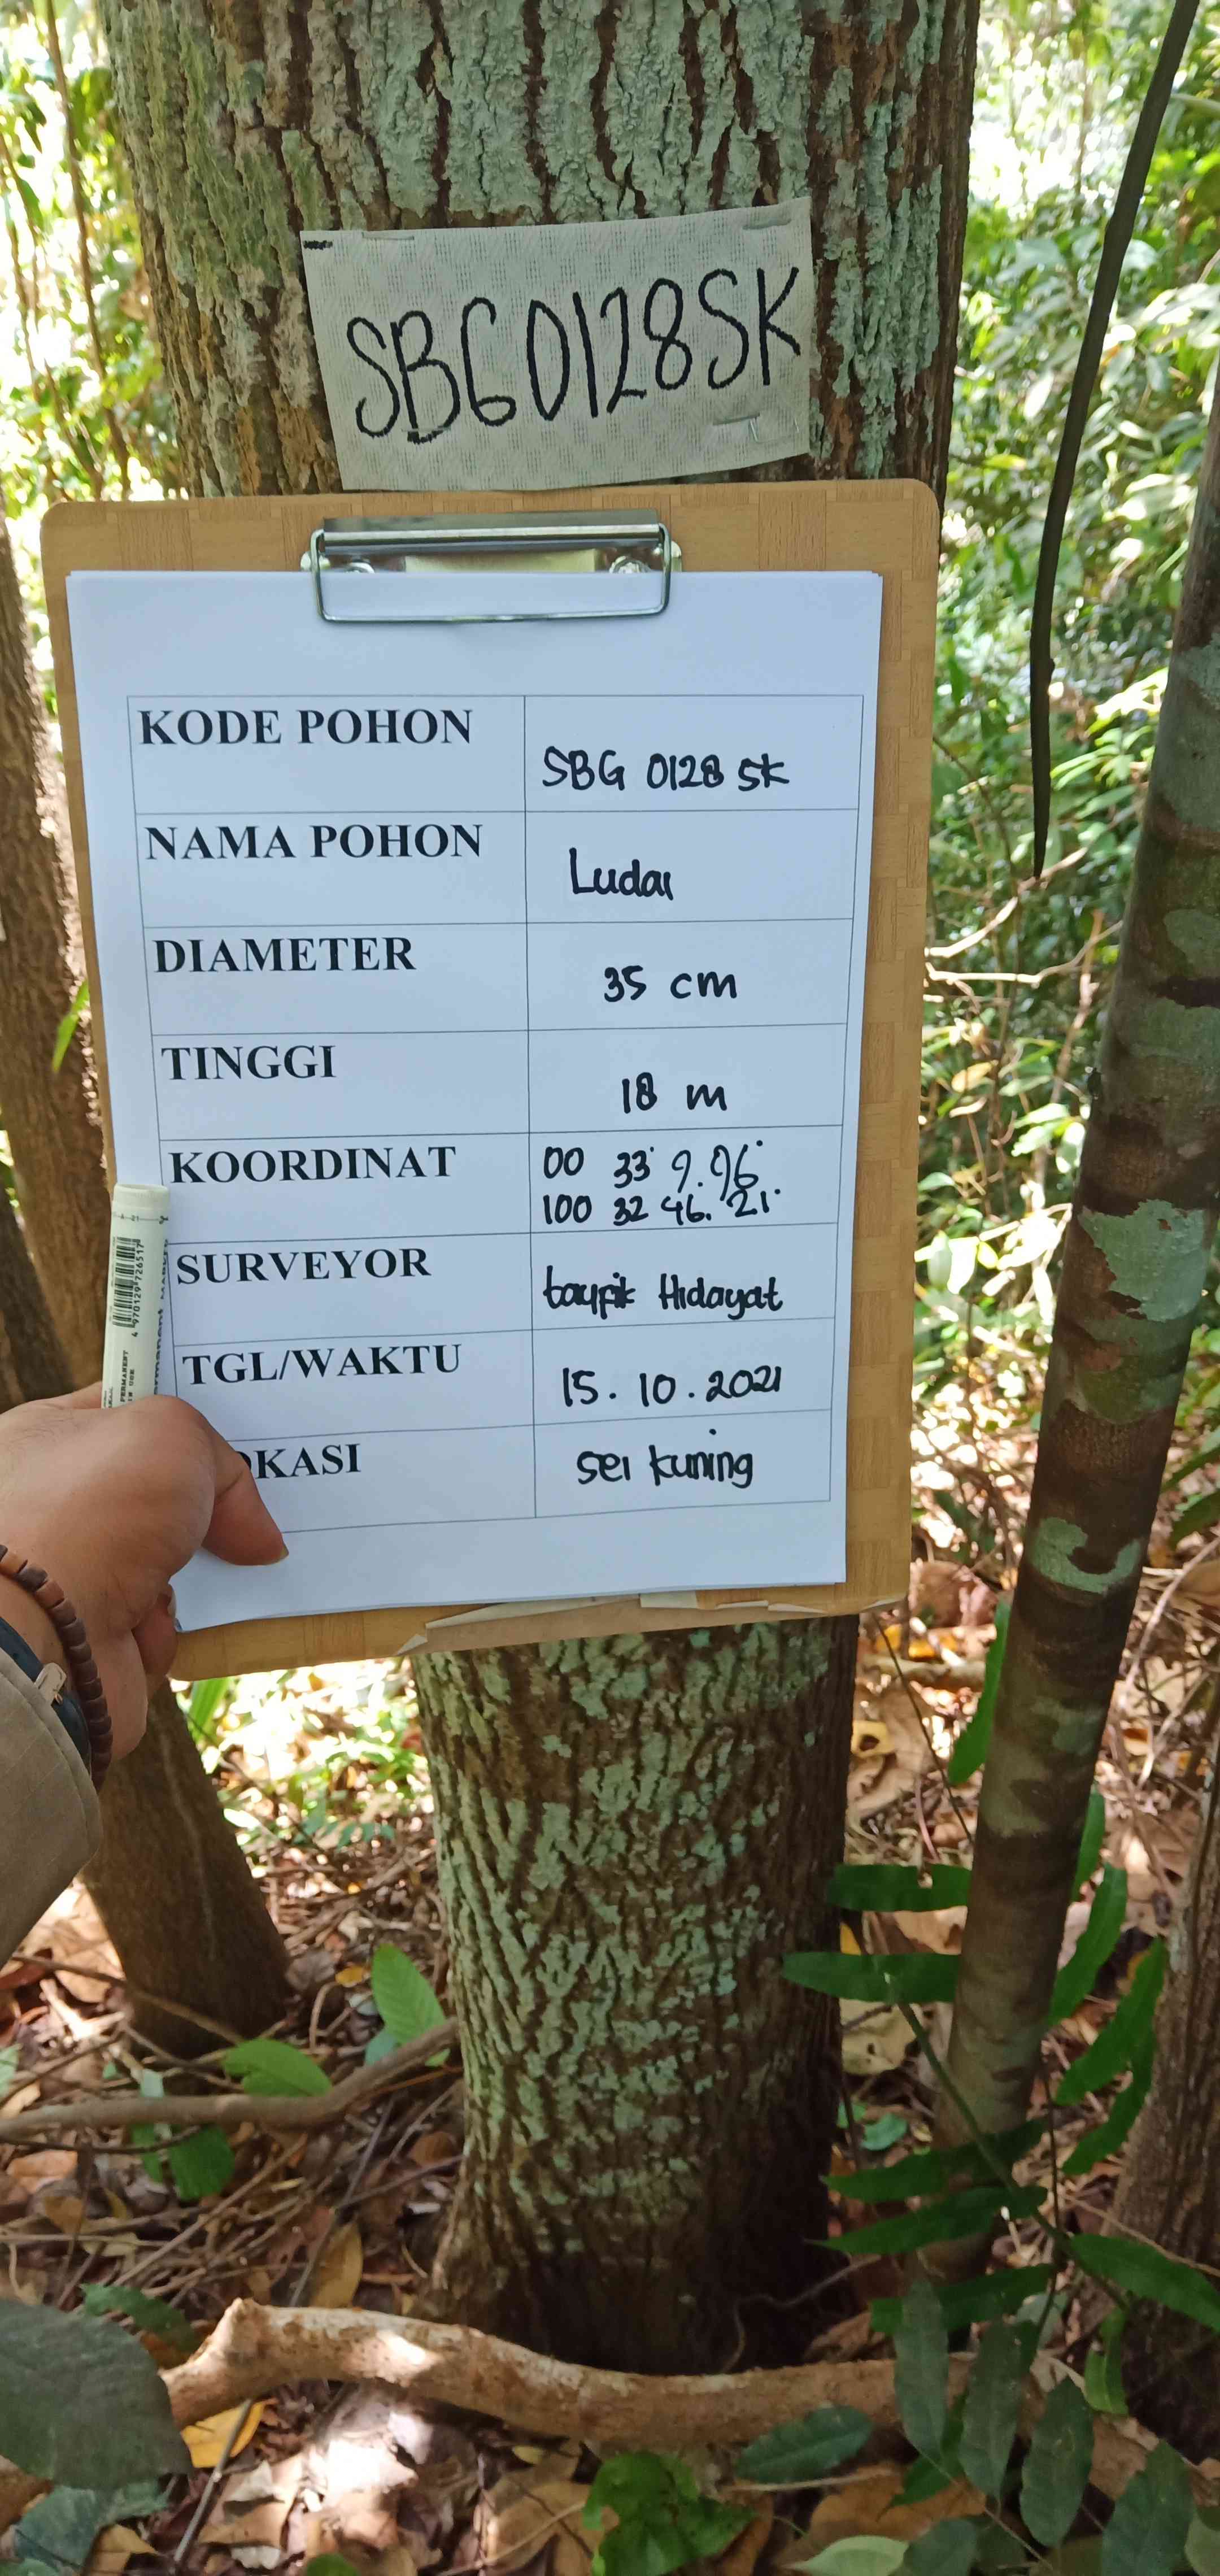 SBG0128SK
KODE POHON
SBG 0128 SK
NAMA POHON
Ludai
DIAMETER
35 cm
TINGGI
18 m
KOORDINAT
00 33' 9.96"
100 32 46. 21"
SURVEYOR
taupik Hidayat
TGL/WAKTU
15.10.2021
OKASI
sei kuning
4 970129 726517
PERMANENT